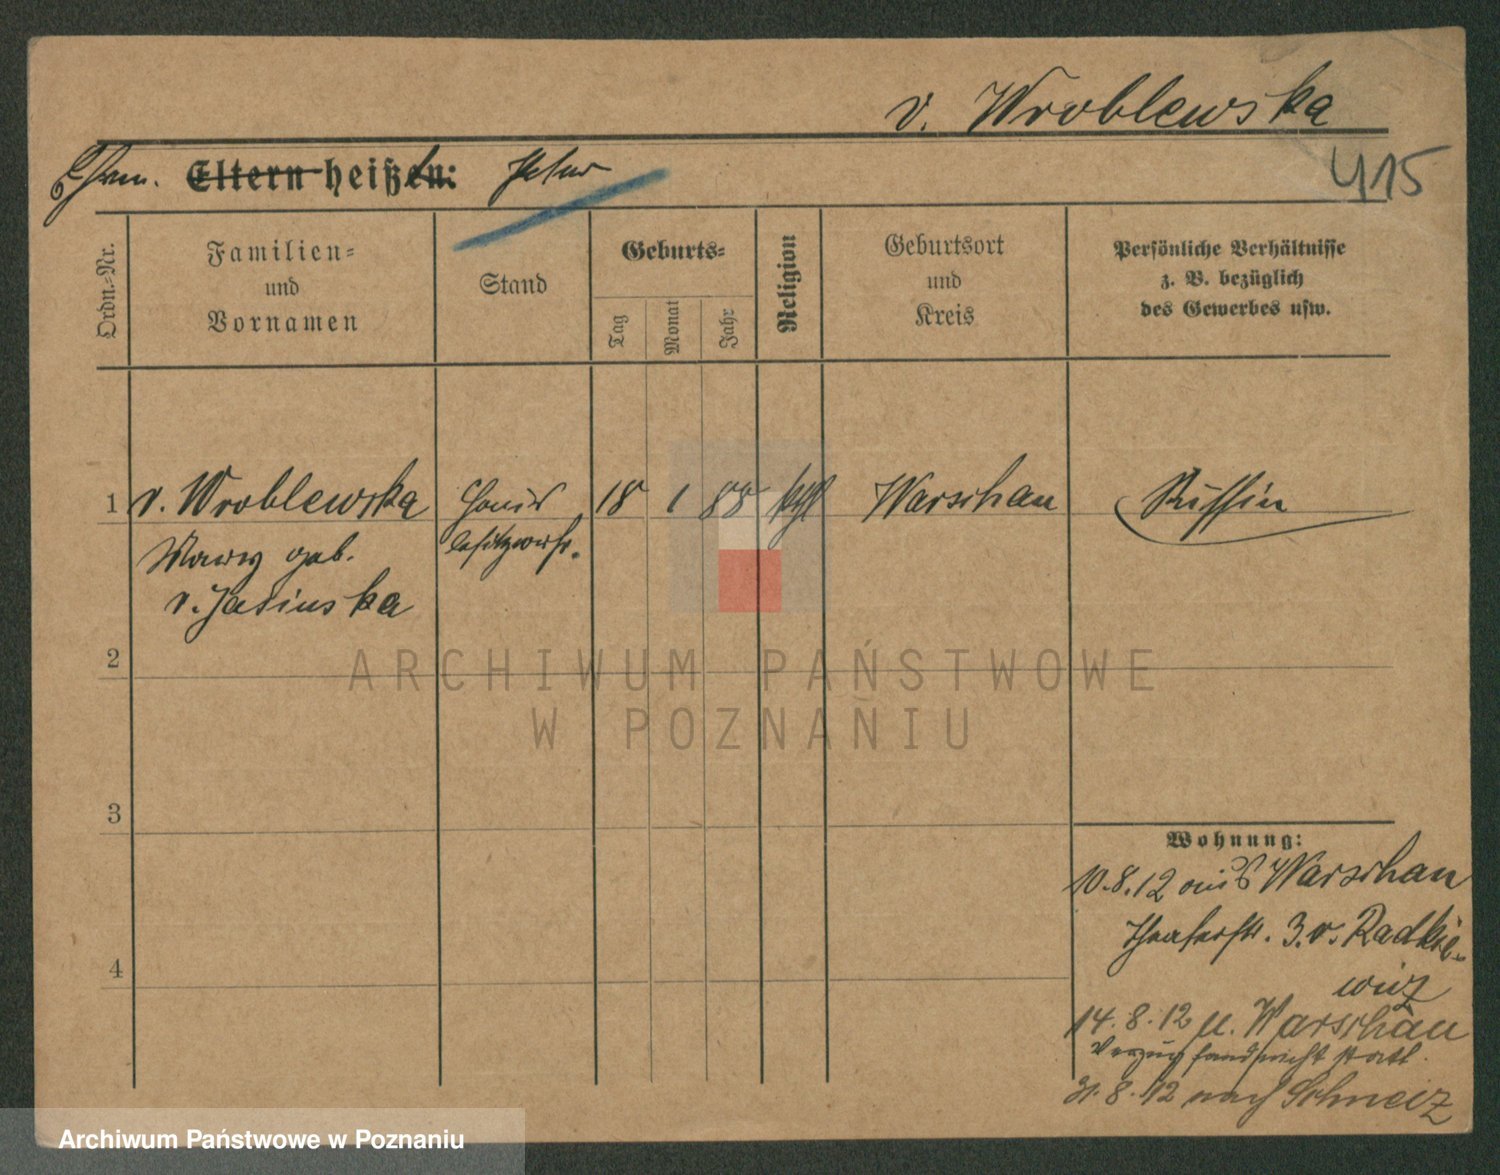 v. Wroblewska
415
Ehem. Eltern heißen: Peter
Ordn.-Nr.
Familien-
und
Vornamen
Stand
Geburts-
Tag
Monat
Jahr
Religion
Geburtsort
und
Kreis
Persönliche Verhältnisse
z. B. bezüglich
des Gewerbes usw.
1 v. Wroblewska Haus 18 1 88 kth Warschau Russin
Mary geb. besitzersfr.
v. Jasinska
2
3
4
Wohnung:
10.8.12 aus Warschau
Theaterstr. 3. v. Radkie-
wicz
14.8.12 n. Warschau
Verzug fand nicht statt.
31.8.12 nach Schweiz
ARCHIWUM PAŃSTWOWE
W POZNANIU
Archiwum Państwowe w Poznaniu